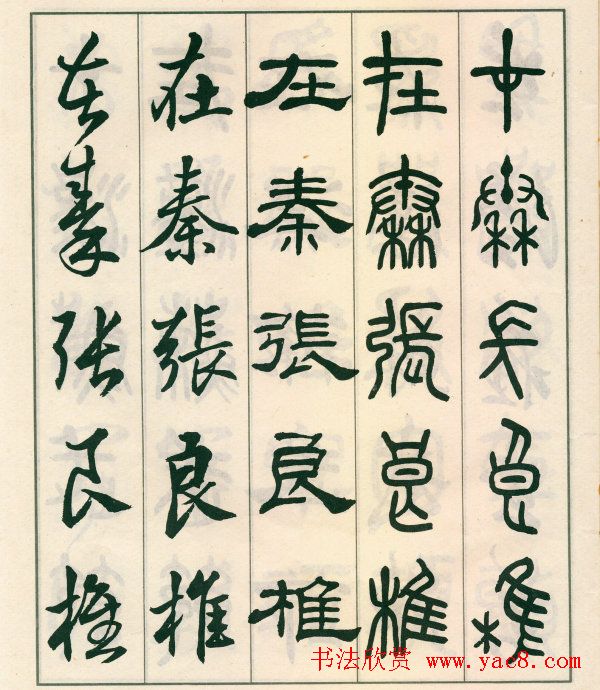 在秦張良椎
在秦張良椎
在秦張良椎
在秦張良椎
在秦張良椎
书法欣赏 www.yac8.com